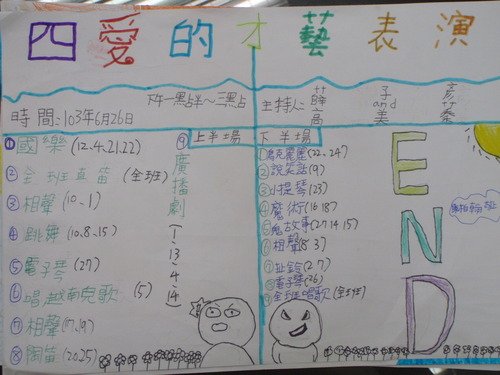 四愛的才藝表演
下午一點半～三點
時間:103年6月26日
主持人:薛高 子and美 彥蓁
上半場
①國樂(12.4.21.22)
②全班直笛(全班)
③相聲(10、1)
④跳舞(10.8.15)
⑤電子琴(27)
⑥唱越南兒歌(5)
⑦相聲(17.19)
⑧陶笛(20.25)
⑨廣播劇(1、13、4、14)
下半場
①烏克麗麗(22、24)
②說笑話(9)
③小提琴(23)
④魔術(16.18)
⑤鬼故事(27.14.15)
⑥相聲(8.3)
⑦扯鈴(2.7)
⑧電子琴(26)
⑨全班唱歌(全班)
END